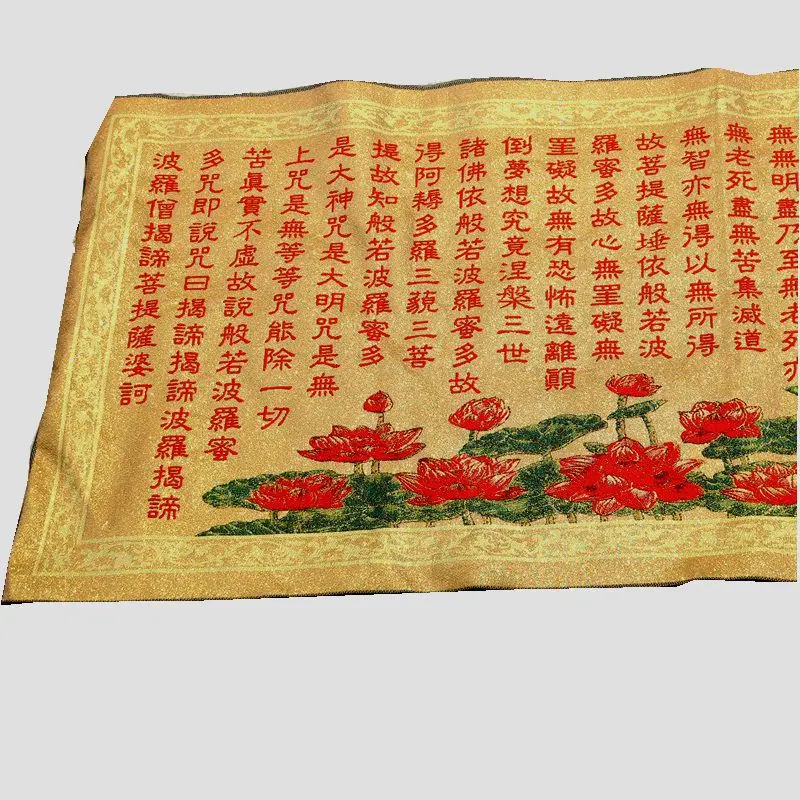 無無明盡乃至無老死亦
無老死盡無苦集滅道
無智亦無得以無所得
故菩提薩埵依般若波
羅蜜多故心無罣礙無
罣礙故無有恐怖遠離顛
倒夢想究竟涅槃三世
諸佛依般若波羅蜜多故
得阿耨多羅三藐三菩
提故知般若波羅蜜多
是大神咒是大明咒是無
上咒是無等等咒能除一切
苦眞實不虛故說般若波羅蜜
多咒即說咒曰揭諦揭諦波羅揭諦
波羅僧揭諦菩提薩婆訶